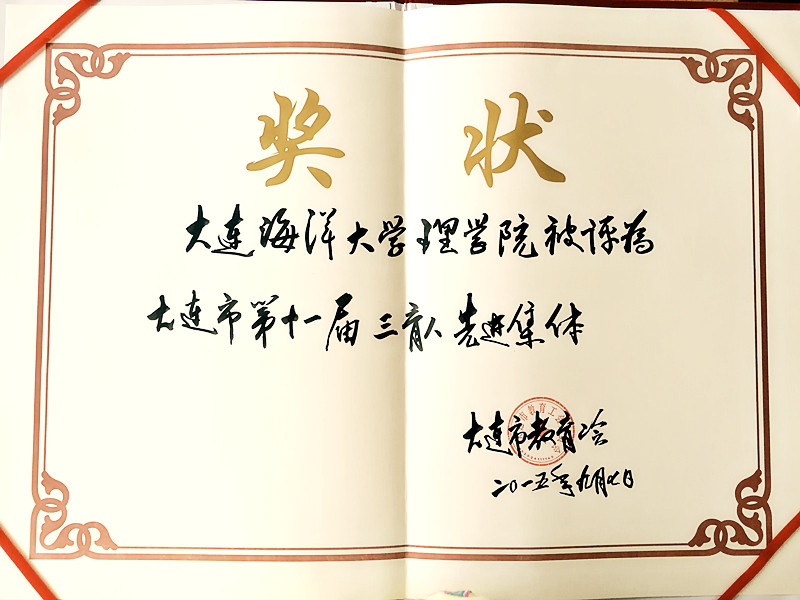 奖状
大连海洋大学理学院被评为
大连市第十一届三育人先进集体
大连市教育工会
二〇一五年九月七日